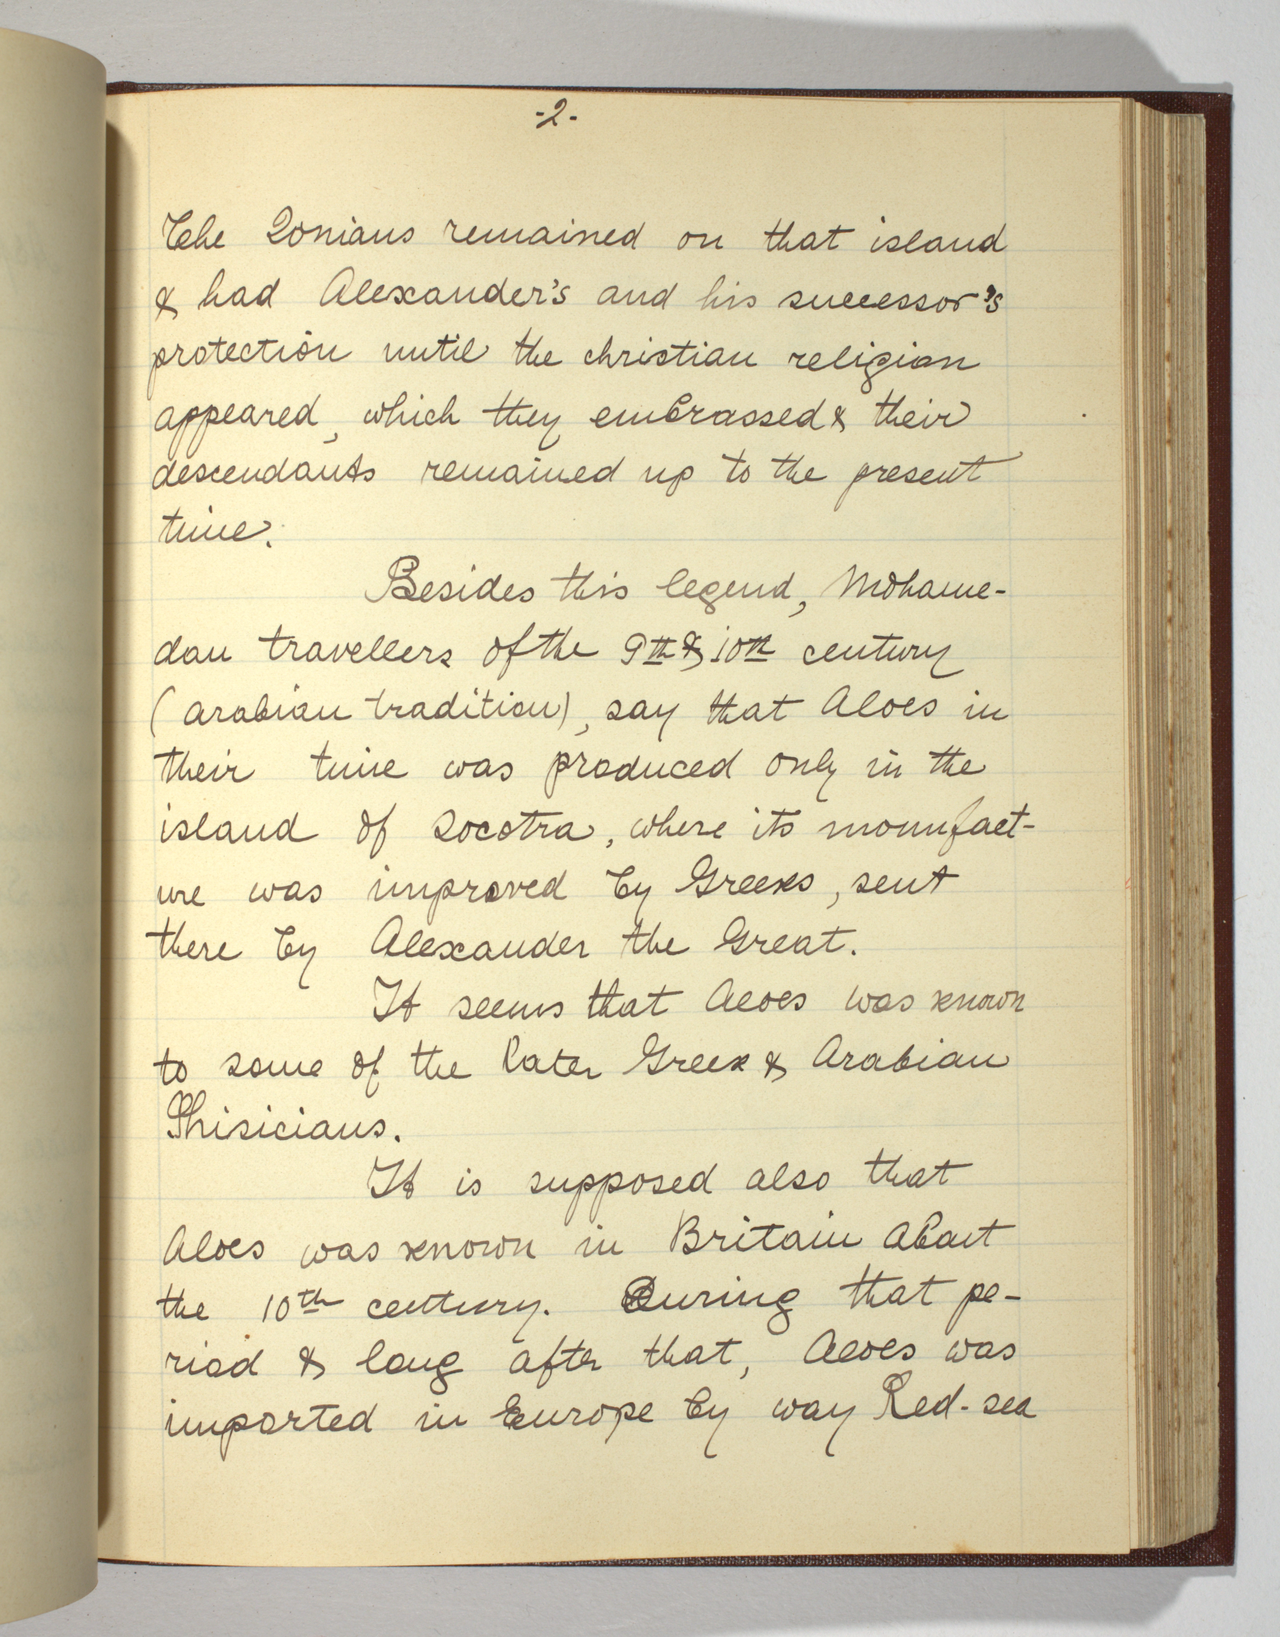 -2-
The Ionians remained on that island
& had Alexander's and his successor's
protection until the christian religion
appeared, which they embrassed & their
descendants remained up to the present
time.
Besides this legend, Mohame-
dan travellers of the 9th & 10th century
(arabian tradition), say that Aloes in
their time was produced only in the
island of Socotra, where its monufact-
ure was improved by Greeks, sent
there by Alexander the Great.
It seems that Aloes was known
to some of the later Greek & Arabian
Phisicians.
It is supposed also that
Aloes was known in Britain about
the 10th century. During that pe-
riod & long after that, Aloes was
imported in Europe by way Red-sea